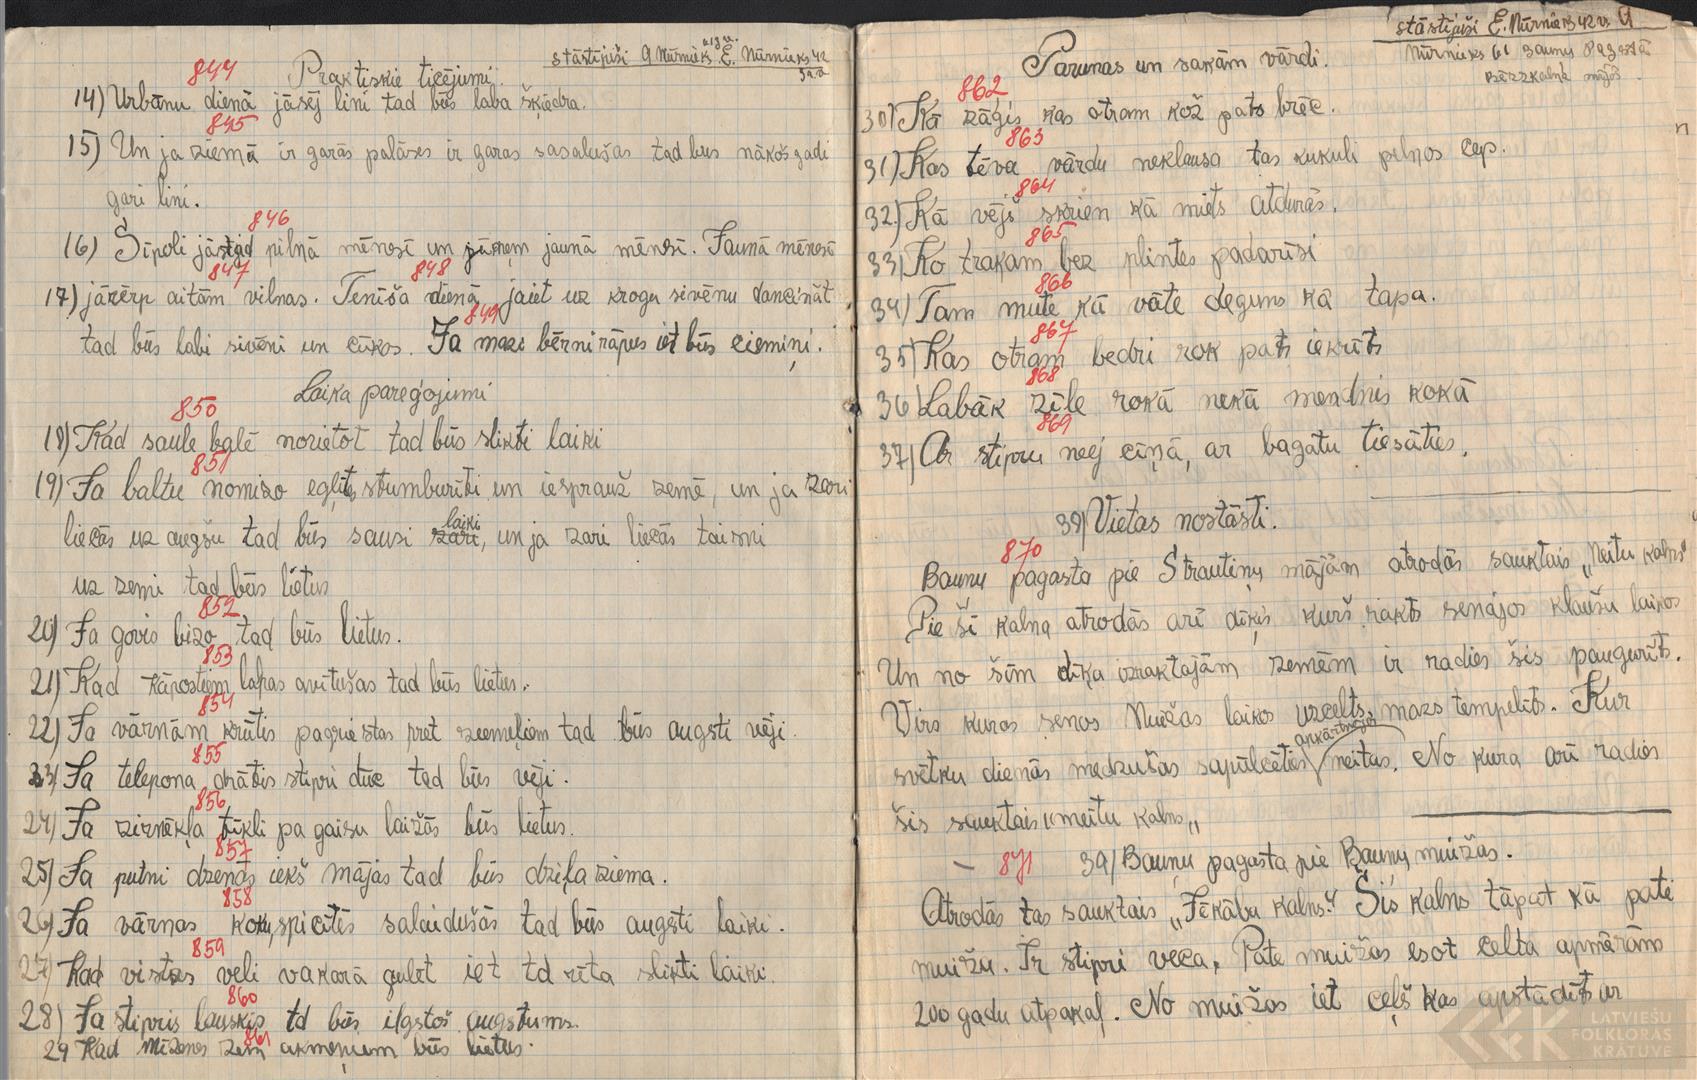 844 Praktiskie ticējumi. stāstījuši A Nūrnieks 13 v. E. Nūrnieks 42
14) Urbānu dienā jāsēj lini tad būs laba šķiedra.
845
15) Un ja ziemā ir garās palāses ir garas sasalušas tad būs nākoš gadi
gari lini.
846
16) Sīpoli jāstād pilnā mēnesī un jāņem jaunā mēnesī. Jaunā mēnesī
847 848
17) jācērp aitām vilnas. Tenīša dienā jāiet uz krogu sivēnu dancināt
849
tad būs labi sivēni un cūkas. Ja mazi bērni rāpus iet būs ciemiņi.
Laika paregojumi
850
18) Kad saule balē norietot tad būs slikti laiki
851
19) Ja baltu nomizo eglīts, stumburīti un iesprauž zemē, un ja zari
liecās uz augšu tad būs sausi zari laiki, un ja zari liecās taisni
uz zemi tad būs lietus
852
20) Ja govis bizo tad būs lietus.
853
21) Kad kāpostiem lapas avītušas tad būs lietus.
854
22) Ja vārnām krūtis pagriestas pret ziemeļiem tad būs augsti vēji.
855
23) Ja telepona drātis stipri dūc tad būs vēji.
856
24) Ja zirnēkļa tīkli pa gaisu laižās būs lietus.
857
25) Ja putni dzenās iekš mājās tad būs dziļa ziema.
858
26) Ja vārnas koku spicītēs salaidušās tad būs augsti laiki.
859
27) Kad vistas vēli vakarā gulēt iet td rīta slikti laiki.
860
28) Ja stipris lauskis td būs ilgstoš augstums.
861
29 Kad mīzenes zem akmeņiem būs lietus.
stāstījuši E. Nūrnieks 42 v. A
Parunas un sakām vārdi. Nūrnieks 61 Bauņu pagastā
Bērzkalnē mājās.
862
30) Kā zāģis kas otram kož pats brēc.
863
31) Kas tēva vārdu neklausa tas kukuli pelnos cep.
864
32) Kā vējš skrien kā miets atdurās.
865
33) Ko trakam bez plintes padarīsi
866
34) Tam mute kā vāte deguns kā tapa.
867
35) Kas otram bedri rok pats iekrīts
868
36) Labāk zīle rokā nekā mednis kokā
869
37) Ar stipru neej cīņā, ar bagātu tiesāties.
38) Vietas nostāsti.
870
Bauņu pagasta pie Strautiņu mājām atrodās sauktais „Meitu kalns"
Pie šī kalna atrodās arī dīķis kurš rakts senajos klaušu laikos
Un no šīm dīķa izraktajām zemēm ir radies šis paugurīts.
Virs kuras senos Muižas laikos uzcelts mazs templīts. Kur
svētku dienās medzušas sapulcēties apkārtnējās meitas. No kura arī radies
šis sauktais „meitu kalns„
– 871 39) Bauņu pagasta pie Bauņu muižas.
Atrodās tas sauktais „Jēkābu kalns." Šis kalns tāpat kā pate
muižu. Ir stipri veca, Pate muižas esot celta apmērām
200 gadu atpakaļ. No muižas iet ceļš kas apstādīts ar
LATVIEŠU
FOLKLORAS
KRĀTUVE